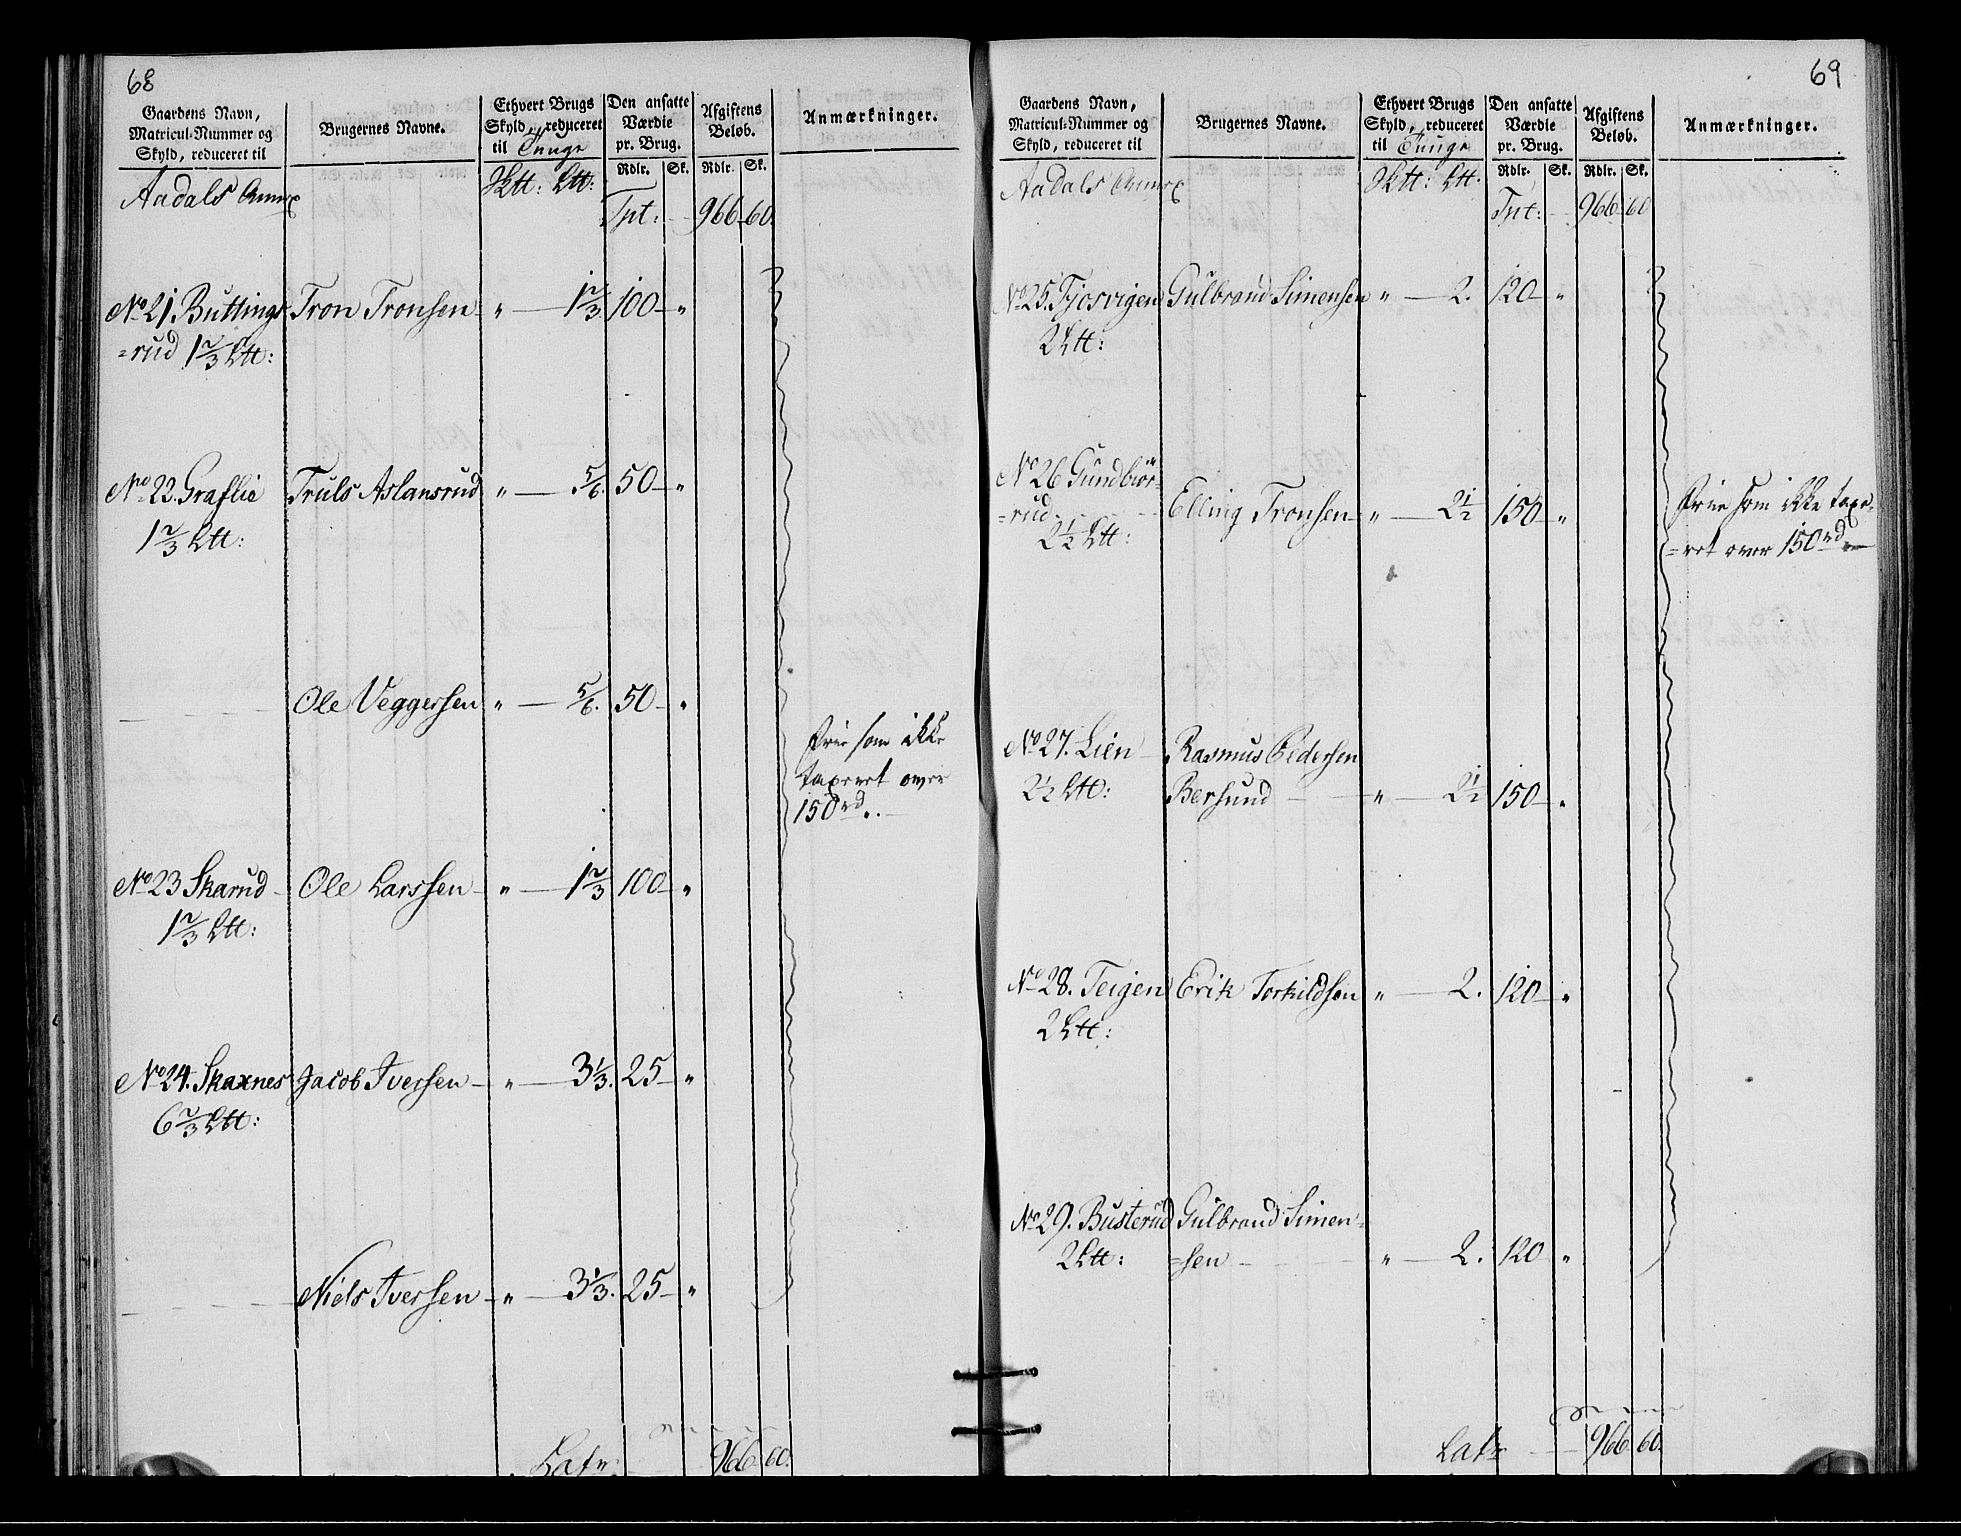 68
Gaardens Navn,
Matricul-Nummer og
Skyld, reduceret til
Brugernes Navne.
Ethvert Brugs
Skyld, reduceret
til Tunge
Den ansatte
Værdie
pr. Brug.
Afgiftens
Beløb.
Anmærkninger.
Rdlr. Sk. Rdlr. Sk.
Aadals Annex
Tpt: 966 60.
No 21. Buttings Tron Tronsen " 1 2/3. 100 "
=rud 1 2/3 Ltt:
No 22. Graflie Truls Aslansrud " 5/6. 50 "
1 2/3 Ltt:
Ole Veggersen " 5/6. 50 "
frie som ikke
taxeret over
150 rd.
No 23 Skarud Ole Larssen " 1 2/3 100 "
1 2/3 Ltt:
No 24. Skaxnes Jacob Iversen " 3 1/3. 25 "
6 2/3 Ltt:
Niels Iversen " 3 1/3. 25 "
966 60.
69
Gaardens Navn,
Matricul-Nummer og
Skyld, reduceret til
Brugernes Navne.
Ethvert Brugs
Skyld, reduceret
til Tunge
Den ansatte
Værdie
pr. Brug.
Afgiftens
Beløb.
Anmærkninger.
Rdlr. Sk. Rdlr. Sk.
Aadals Annex
Tpt: 966 60
No 25. Tjorvigen Gulbrand Simensen " 2. 120 "
2 Ltt:
No 26 Gundbiør=
=rud Elling Tronsen " 2 1/2 150 "
2 1/2 Ltt:
frie som ikke taxe=
=ret over 150 rd
No 27. Lien Rasmus Pedersen
2 1/2 Ltt: Bersund " 2 1/2 150 "
No 28. Teigen Erik Torkildsen " 2. 120 "
2 Ltt:
No 29. Busterud Gulbrand Simen=
2 Ltt: =sen " 2. 120 "
966 60.